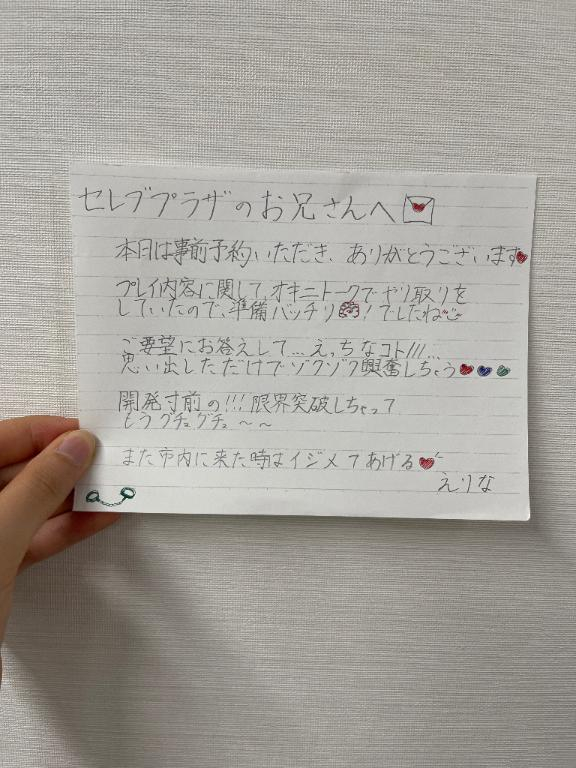 セレブプラザのお兄さんへ
本日は事前予約いただき、ありがとうございます
プレイ内容に関して、オキニトークでやり取りを
していたので、準備バッチリ!でしたね
ご要望にお答えして…えっちなコト///…
思い出しただけでゾクゾク興奮しちゃう
開発寸前の!!!限界突破しちゃって
もうグチュグチュ〜〜
また市内に来た時はイジメてあげる
えりな